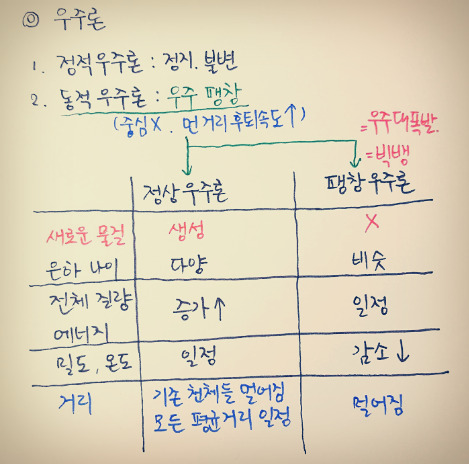 ◎ 우주론
1. 정적우주론 : 정지. 불변
2. 동적우주론 : 우주 팽창
(중심X. 먼거리 후퇴속도↑)
=우주대폭발.
=빅뱅
정상우주론 팽창우주론
새로운 물질 생성 X
은하 나이 다양 비슷
전체 질량
에너지 증가↑ 일정
밀도, 온도 일정 감소↓
거리 기존 천체들 멀어짐 멀어짐
모든 평균거리 일정